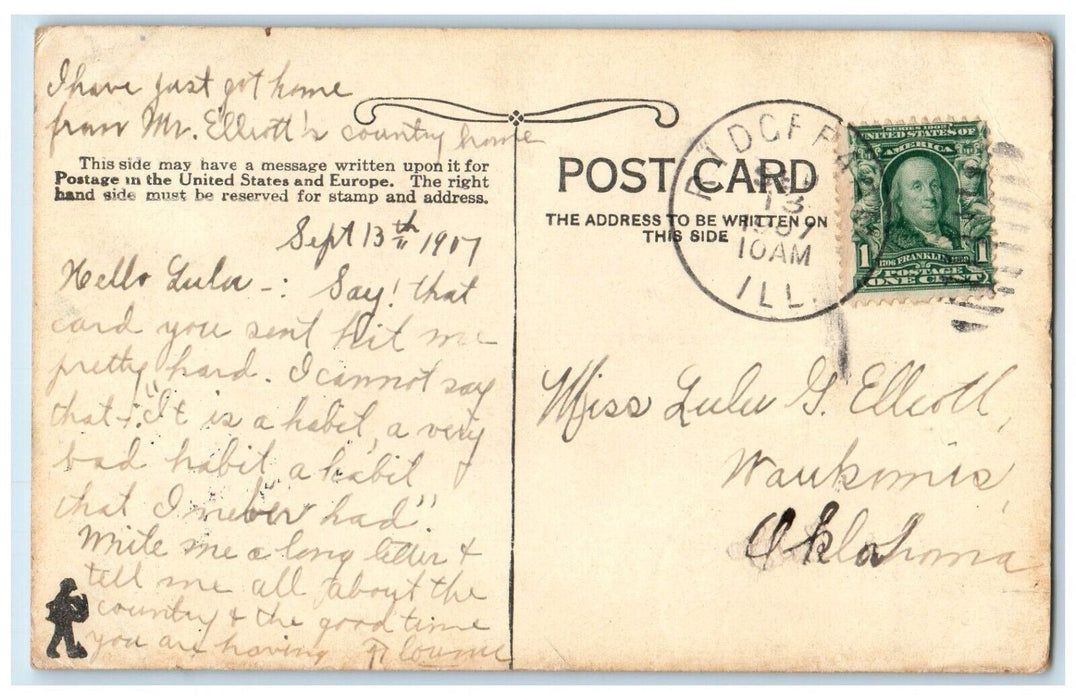 I have just got home
from Mr. Elliott's country home
This side may have a message written upon it for
Postage in the United States and Europe. The right
hand side must be reserved for stamp and address.
Sept 13th 1907
Hello Lulu -: Say! that
card you sent hit me
pretty hard. I cannot say
that -: "It is a habit, a very
bad habit, a habit
that I never had".
Write me a long letter &
tell me all about the
country & the good time
you are having
POST CARD
THE ADDRESS TO BE WRITTEN ON
THIS SIDE
13
1907
10 AM
ILL.
SERIES 1902
UNITED STATES OF
AMERICA
1706 FRANKLIN 1790
1 POSTAGE 1
ONE CENT
Miss Lulu G. Elliott,
Waukomis,
Oklahoma